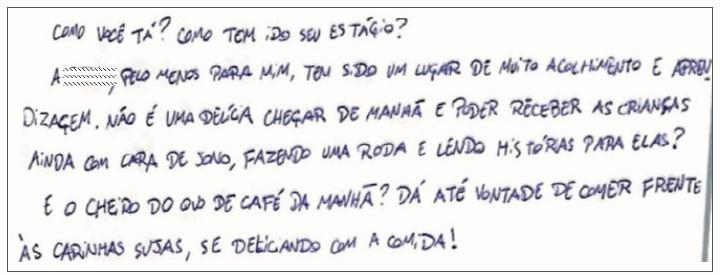 COMO VOCÊ TÁ? COMO TEM IDO SEU ESTÁGIO?
A , PELO MENOS PARA MIM, TEM SIDO UM LUGAR DE MUITO ACOLHIMENTO E APREN
DIZAGEM. NÃO É UMA DELÍCIA CHEGAR DE MANHÃ E PODER RECEBER AS CRIANÇAS
AINDA COM CARA DE SONO, FAZENDO UMA RODA E LENDO HISTÓRIAS PARA ELAS?
E O CHEIRO DO OVO DE CAFÉ DA MANHÃ? DÁ ATÉ VONTADE DE COMER FRENTE
ÀS CARINHAS SUJAS, SE DELICIANDO COM A COMIDA!